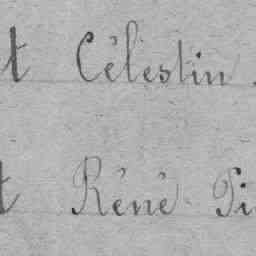 t Célestin
t Réné Pi